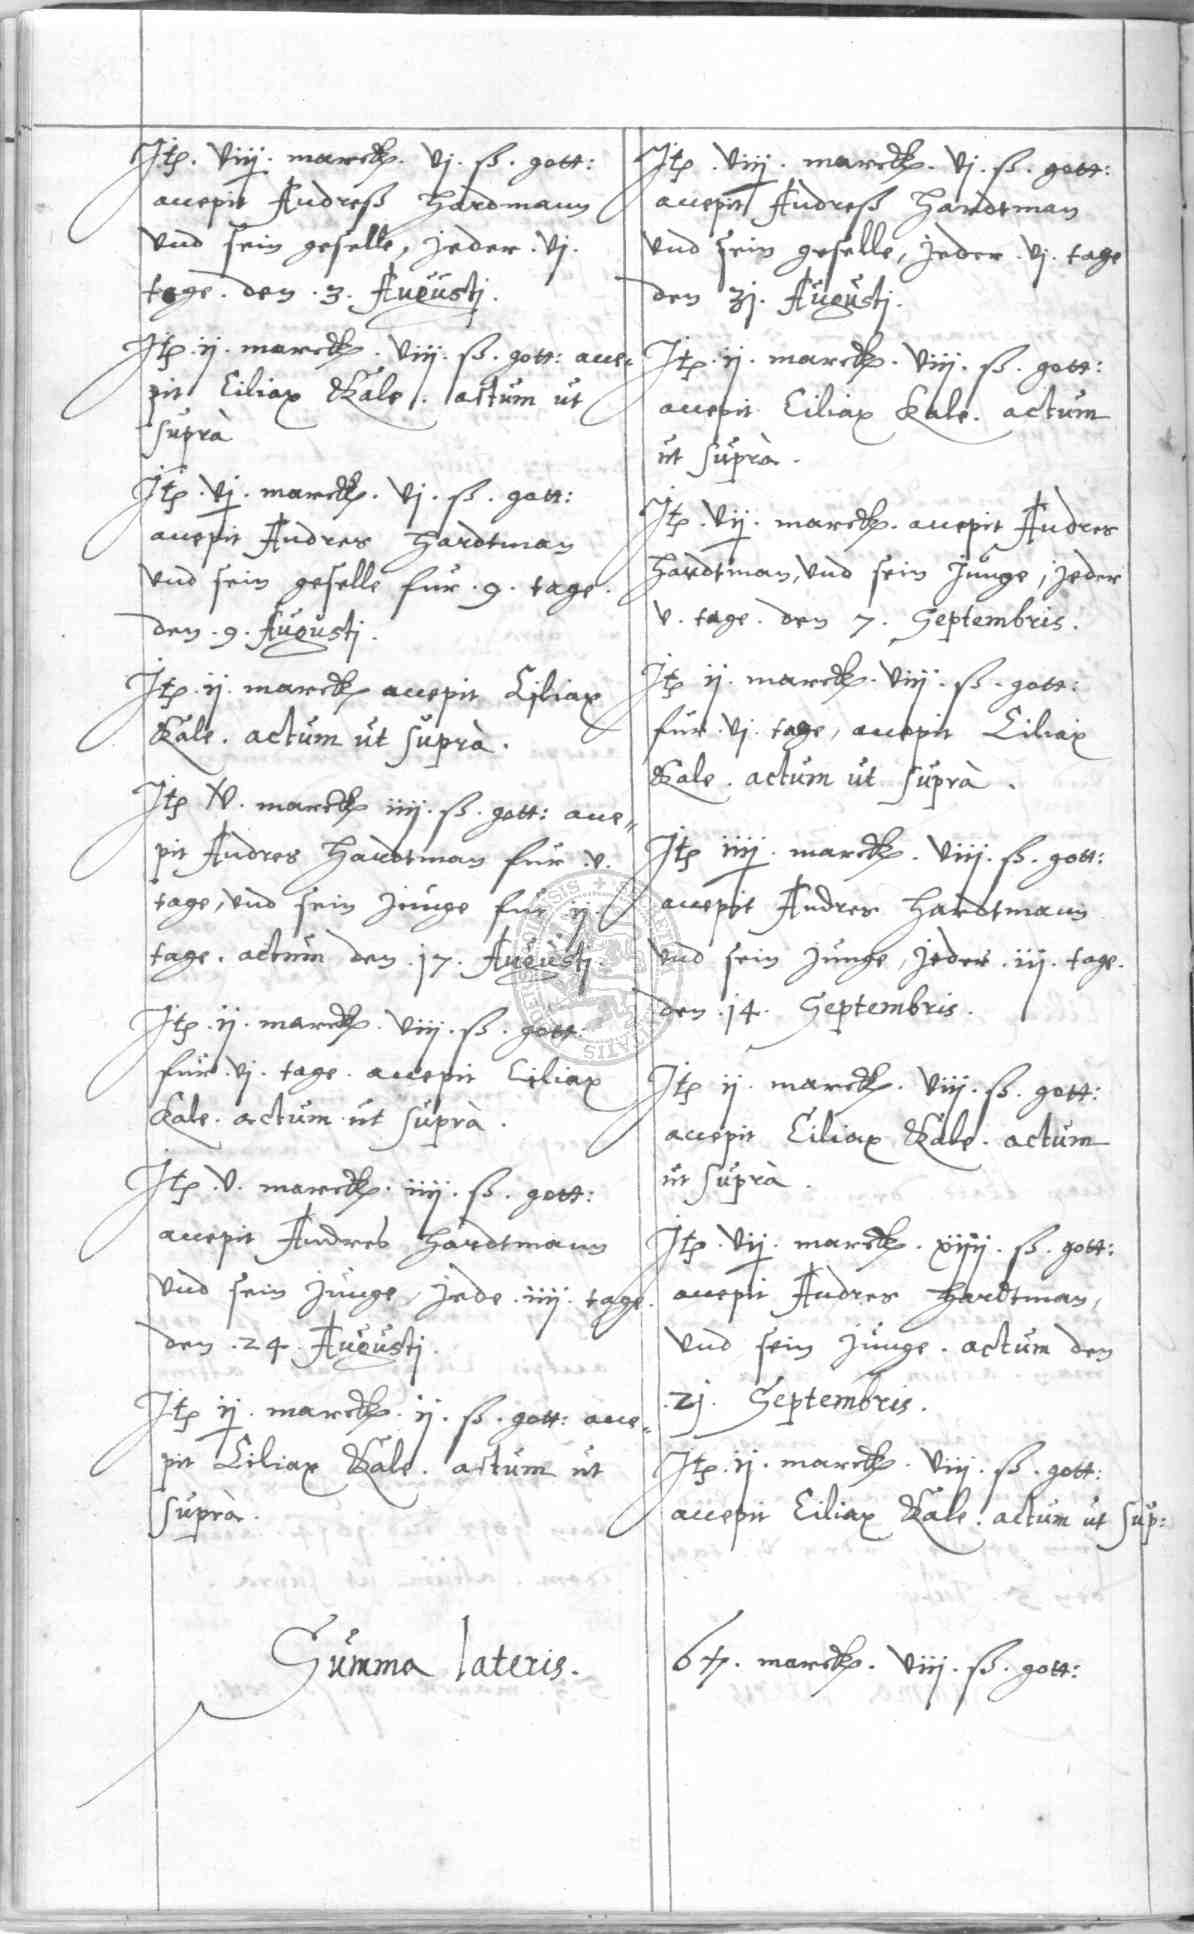 Jtꝫ. viij. marck. vj. ß. gott:
accepit Andreß Hardmann
vnd sein geselle, jeder. vj.
tage. den. 3. Augustj.
Jtꝫ. ij. marck. viij. ß. gott: acce-
pit Ciliax Kale. actum ut
suprà
Jtꝫ. vj. marck. vj. ß. gott:
accepit Andres Hardtman
vnd sein geselle fur. 9. tage.
den. 9. Augustj.
Jtꝫ. ij. marck accepit Ciliax
Kale. actum ut suprà.
Jtꝫ v. marck iiij. ß. gott: acce-
pit Andres Hardtman für. v.
tage, vnd sein junge für ij.
tage. actum den. 17. Augustj
Jtꝫ. ij. marck. viij. ß. gott:
für. vj. tage. accepit Ciliax
Kale. actum ut suprà.
Jtꝫ. v. marck. iiij. ß. gott:
accepit Andres Hardtmann
vnd sein junge, jede. iiij. tage.
den. 24. Augustj.
Jtꝫ ij. marck. ij. ß. gott: acce-
pit Ciliax Kale. actum ut
suprà.
Jtꝫ. viij. marck. vj. ß. gott:
accepit Andreß Hardtman
vnd sein geselle, jeder. vj. tage
den 31. Augustj.
Jtꝫ. ij. marck. viij. ß. gott:
accepit Ciliax Kale. actum
ut suprà.
Jtꝫ. vij. marck. accepit Andres
Hardtman, vnd sein junge, jeder
v. tage. den 7. Septembris.
Jtꝫ ij. marck. viij. ß. gott:
für. vj. tage, accepit Ciliax
Kale. actum ut suprà.
Jtꝫ iiij. marck. viij. ß. gott:
accepit Andres Hardtmann
vnd sein junge, jeder. iij. tage.
den. 14. Septembris.
Jtꝫ ij. marck. viij. ß. gott:
accepit Ciliax Kale. actum
ut suprà.
Jtꝫ. vij. marck. xiiij. ß. gott:
accepit Andres Hardtman,
vnd sein junge. actum den
.21. Septembris.
Jtꝫ. ij. marck. viij. ß. gott:
accepit Ciliax Kale. actum ut sup:
Summa lateris.
marck. viij. ß. gott: